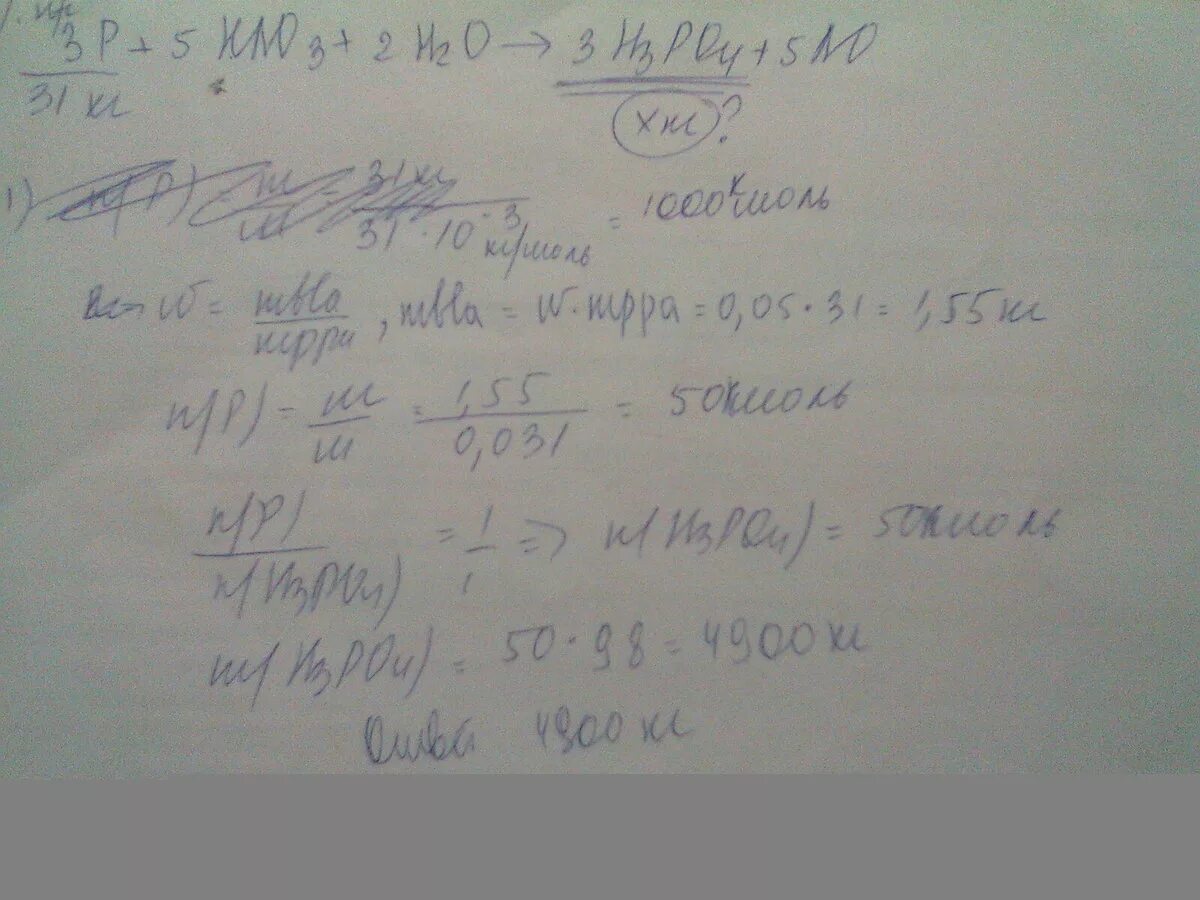 3P + 5HNO3 + 2H2O → 3H3PO4 + 5NO
31 кг
x кг ?
1) n(P) = m/M = 31 кг / 31·10^-3 кг/моль = 1000 кмоль
W = mв-ва / mр-ра, mв-ва = W·mр-ра = 0,05·31 = 1,55 кг
n(P) = m/M = 1,55 / 0,031 = 50 кмоль
n(P) / n(H3PO4) = 1/1 => n(H3PO4) = 50 кмоль
m(H3PO4) = 50·98 = 4900 кг
Ответ 4900 кг